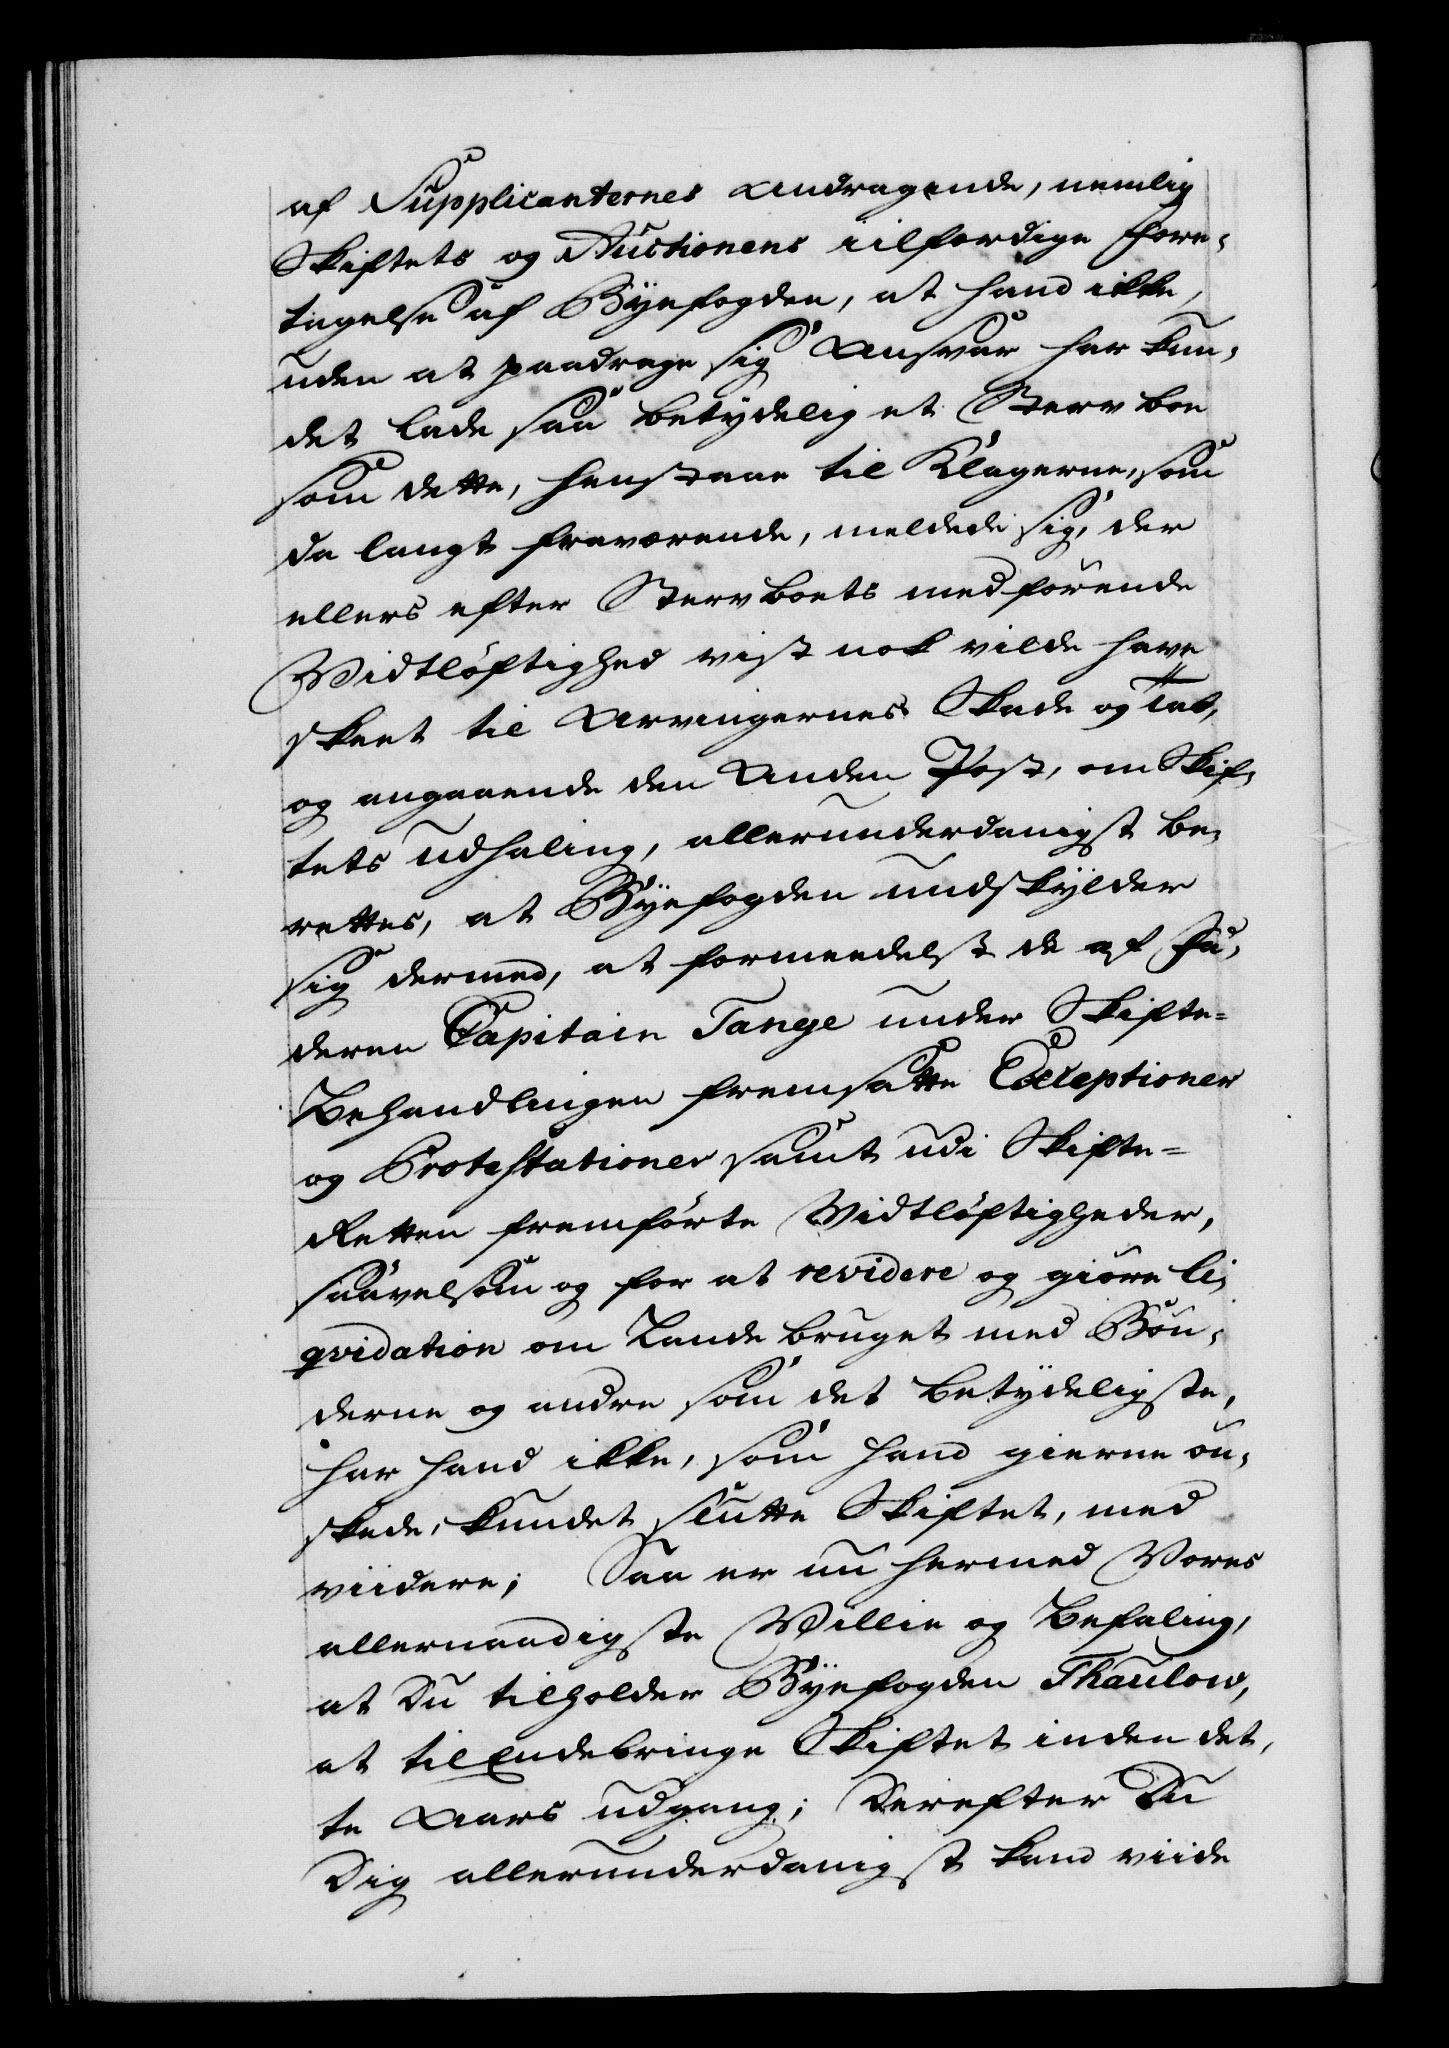 af Supplicanternes Andragende, nemlig
Skiftets og Auctionens iilfærdige Fore-
tagelse af Byefogden, at hand ikke,
uden at paadrage sig Ansvar har kun-
det lade saa betydelig et Sterv boe
som dette, henstaae til Klagerne, som
da langt fraværende, meldede sig, der
ellers efter Stervboets medførende
Widtløftighed vist nok vilde have
skeet til Arvingernes Skade og Tab,
og angaaende den Anden Post, om Skif-
tets udhaling, allerunderdanigst be-
rettes, at Byefogden undskylder
sig dermed, at formedelst de af Fa-
deren Capitain Tange under Skifte-
Behandlingen fremsatte Exceptioner
og Protestationer samt udi Skifte-
Retten fremførte Widtløftigheder,
saavelsom og for at revidere og giøre li-
qvidation om Lande bruget med Bøn-
derne og andre som det betydeligste,
har hand ikke, som hand gierne øn-
skede, kundet slutte Skiftet, med
viidere; Saa er nu hermed Vores
allernaadigste Willie og Befaling,
at Du tilholder Byefogden Thaulow,
at tilEndebringe Skiftet inden det-
te Aars udgang; Derefter Du
Dig allerunderdanigst kand viide